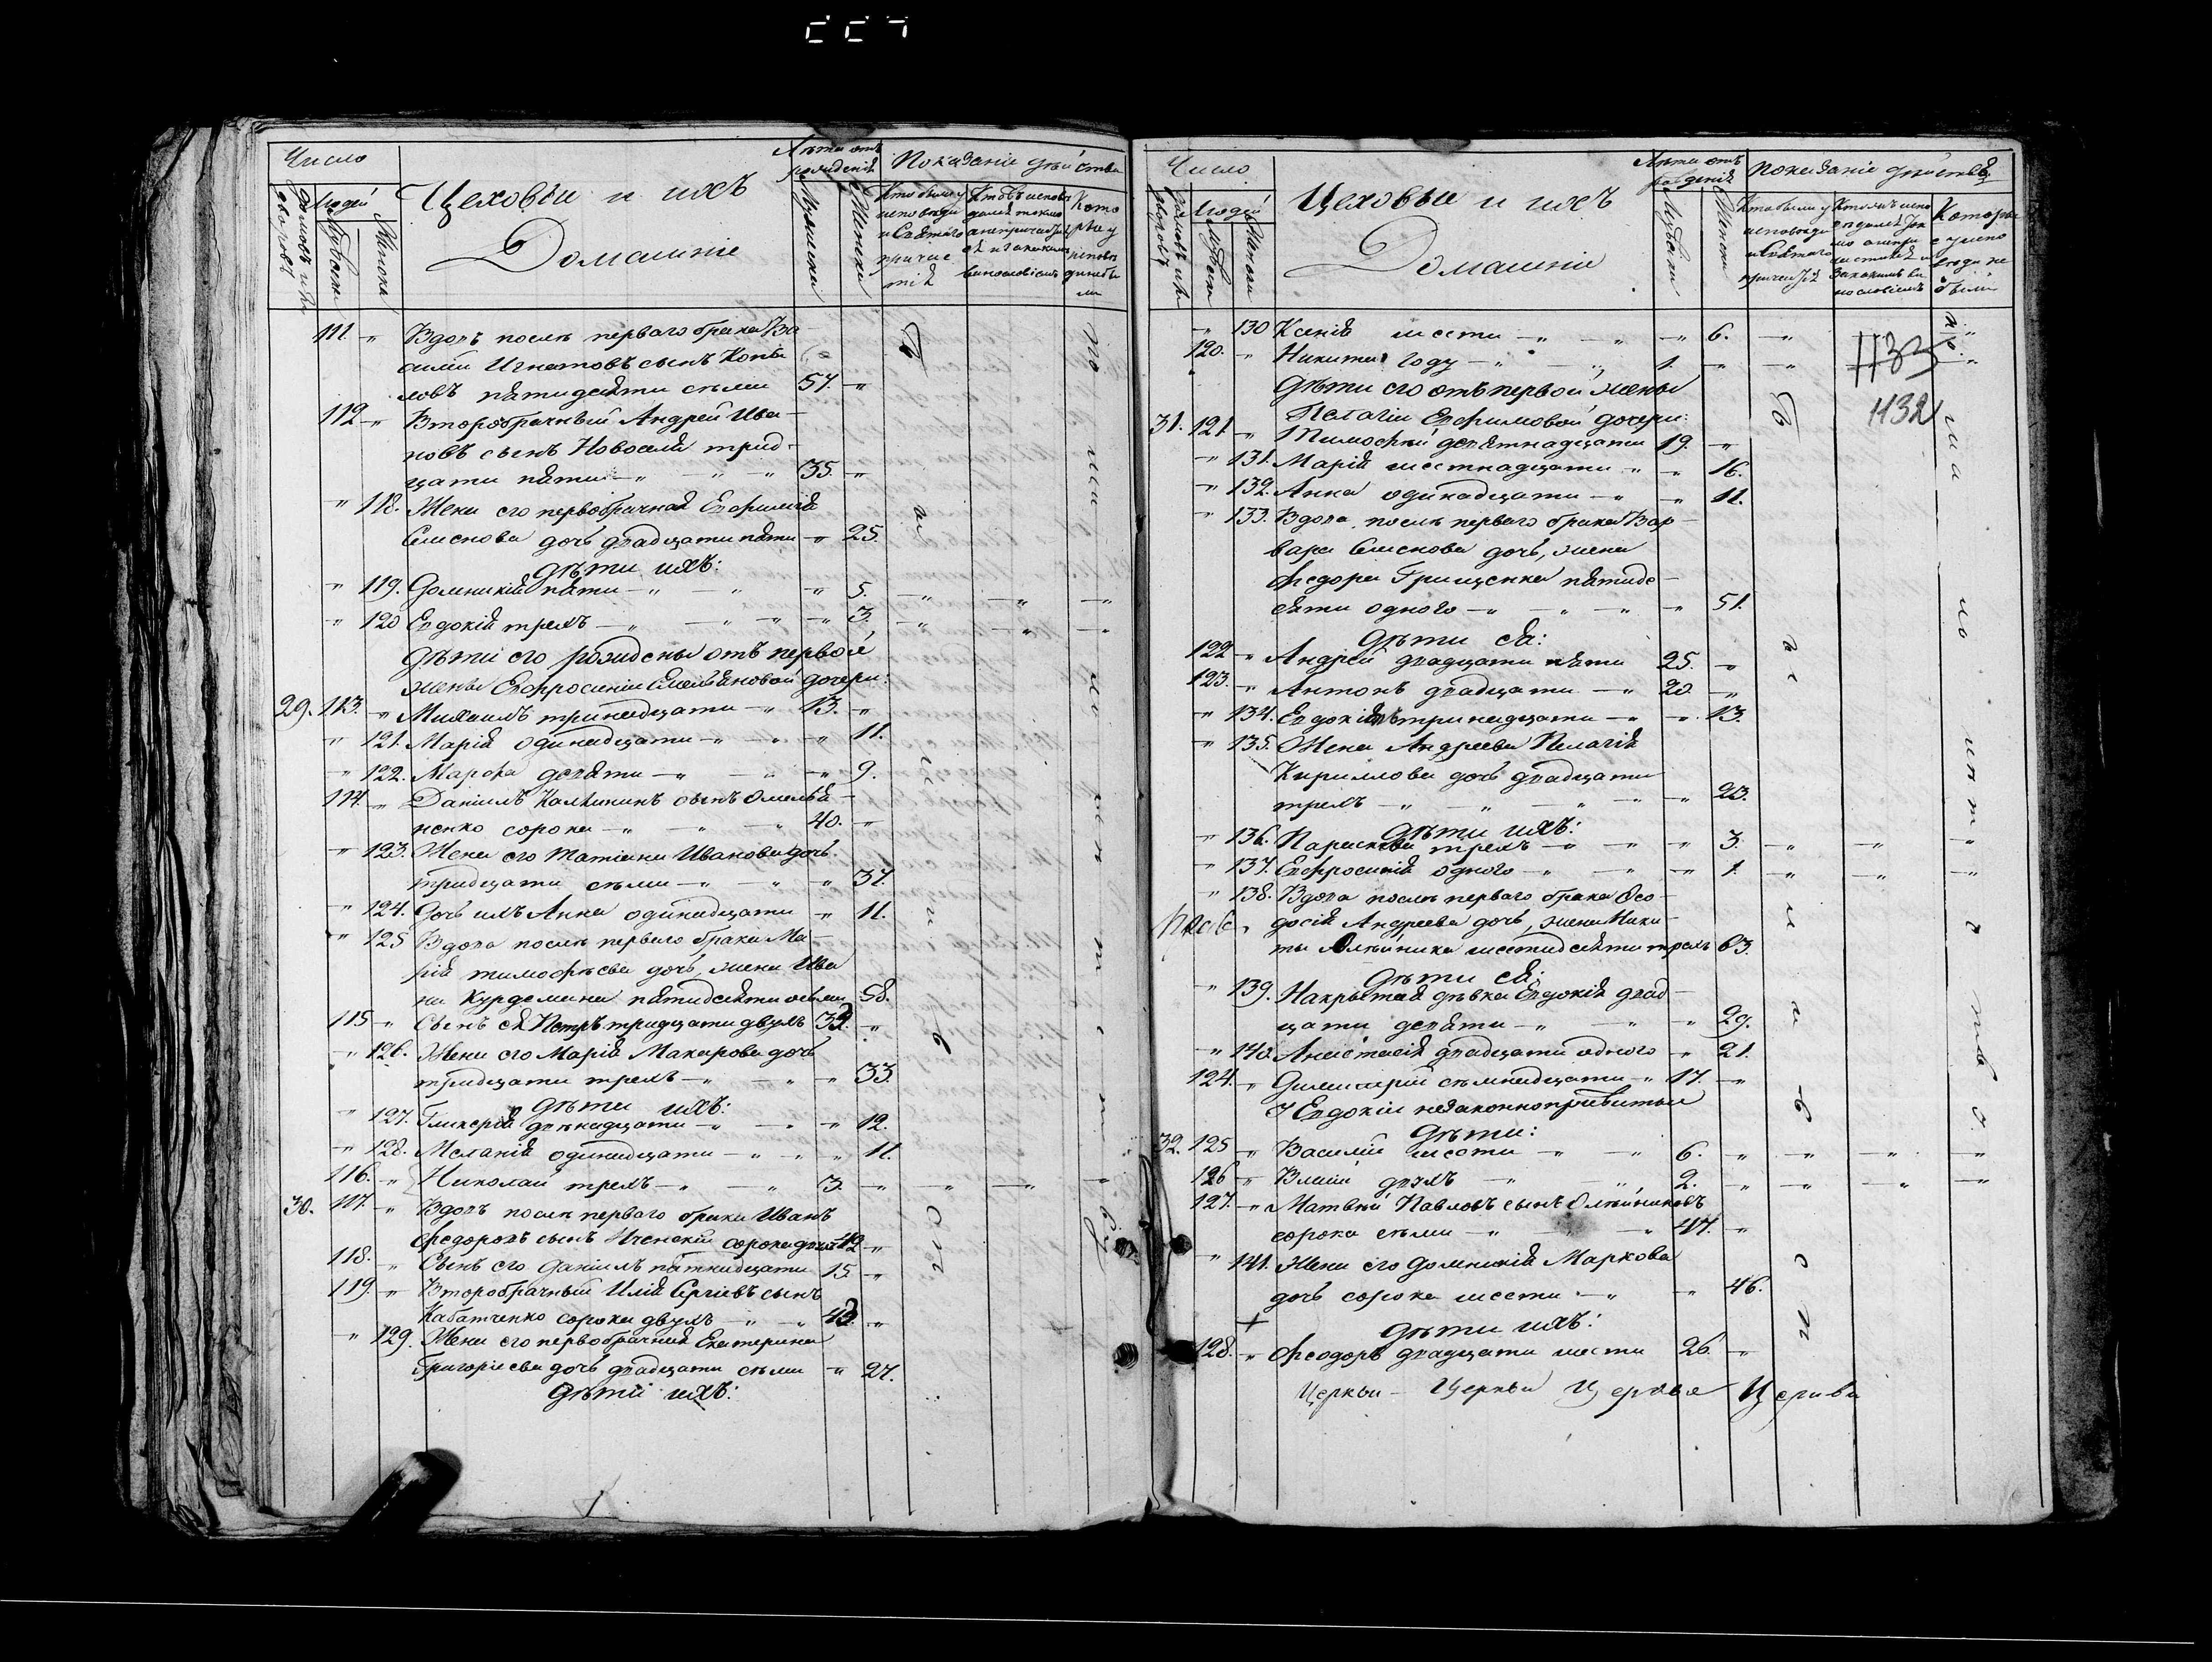 Число
Домовъ или дворовъ
Людей
Мужеска
Женска
Цеховыи и ихъ
Домашніе
Лѣта отъ рожденія
Мужески
Женски
Показаніе дѣйства
Кто были у исповѣди и Святаго причастія
Которые у исповѣди не были
111. Вдовъ послѣ перваго брака Ва
силій Игнатовъ сынъ Копы
ловъ пятидесяти семи 57.
112 Второбрачный Андрей Ива-
новъ сынъ Новосела трид-
цати пяти 35.
118. Жена его первобрачная Евфимія
Семенова дочь двадцати пяти 25.
Дѣти ихъ:
119. Домникія пяти 5.
120 Евдокія трехъ 3.
Дѣти его рождены отъ первой
жены Евфросиніи Емельяновой дочери:
29. 113. Михаилъ тринадцати 13.
121. Марія одинадцати 11.
122. Марфа девяти 9.
114. Даніилъ Калинкинъ сынъ Омелья-
ненко сорока 40.
123. Жена его Татіана Иванова дочь
тридцати семи 37.
124. Дочь ихъ Анна одинадцати 11.
125 Вдова послѣ перваго брака Ма-
рія Тимофѣева дочь, жена Ива
на Курдемана пятидесяти осьми 58.
115 Сынъ ея Петръ тридцати двухъ 32.
126. Жена его Марія Макарова дочь
тридцати трехъ 33.
Дѣти ихъ:
127. Гликерія двѣнадцати 12.
128. Меланія одинадцати 11.
116. Николай трехъ 3.
30. 117. Вдовъ послѣ перваго брака Иванъ
Федоровъ сынъ Иченскій сорока двухъ 42
118. Сынъ его Даніилъ пятнадцати 15.
119. Второбрачный Илія Сергіевъ сынъ
Кабатченко сорока двухъ 42.
129. Жена его первобрачная Екатерина
Григоріева дочь двадцати семи 27.
Дѣти ихъ:
Число
Домовъ или дворовъ
Людей
Мужески
Женски
Цеховыи и ихъ
Домашніи
Лѣта отъ рожденія
Мужески
Женски
Показаніе дѣйства
Кто были у исповѣди и Святаго причастія
Которые у исповѣди не были
130 Ксенія шести 6.
120. Никита году 1.
1133
1132
Дѣти его отъ первой жены
Пелагіи Евфимовой дочери:
31. 121. Тимофей девятнадцати 19.
131. Марія шестнадцати 16.
132. Анна одинадцати 11.
133. Вдова послѣ перваго брака Вар-
вара Семенова дочь, жена
Федора Грищенка пятиде-
сяти одного 51.
Дѣти ея:
122 Андрей двадцати пяти 25.
123. Антонъ двадцати 20.
134. Евдокія тринадцати 13.
135. Жена Андреева Пелагія
Кириллова дочь двадцати
трехъ 23.
Дѣти ихъ:
136. Параскева трехъ 3.
137. Евфросинія одного 1.
138. Вдова послѣ перваго брака Фео-
досія Андреева дочь, жена Ники-
ты Олѣйника шестидесяти трехъ 63.
Дѣти ея:
139. Накрытая дѣвка Евдокія двад-
цати девяти 29.
140. Анастасія двадцати одного 21.
124. Димитрій семнадцати 17.
У Евдокіи незаконноприжитыи
Дѣти:
32. 125 Василій шести 6.
126 Власій двухъ 2.
127. Матвѣй Павловъ сынъ Олѣйниковъ
сорока семи 47.
141. Жена его Домникія Маркова
дочь сорока шести 46.
Дѣти ихъ:
128. Феодоръ двадцати шести 26.
Церкви - Церкви Церкви Церкви